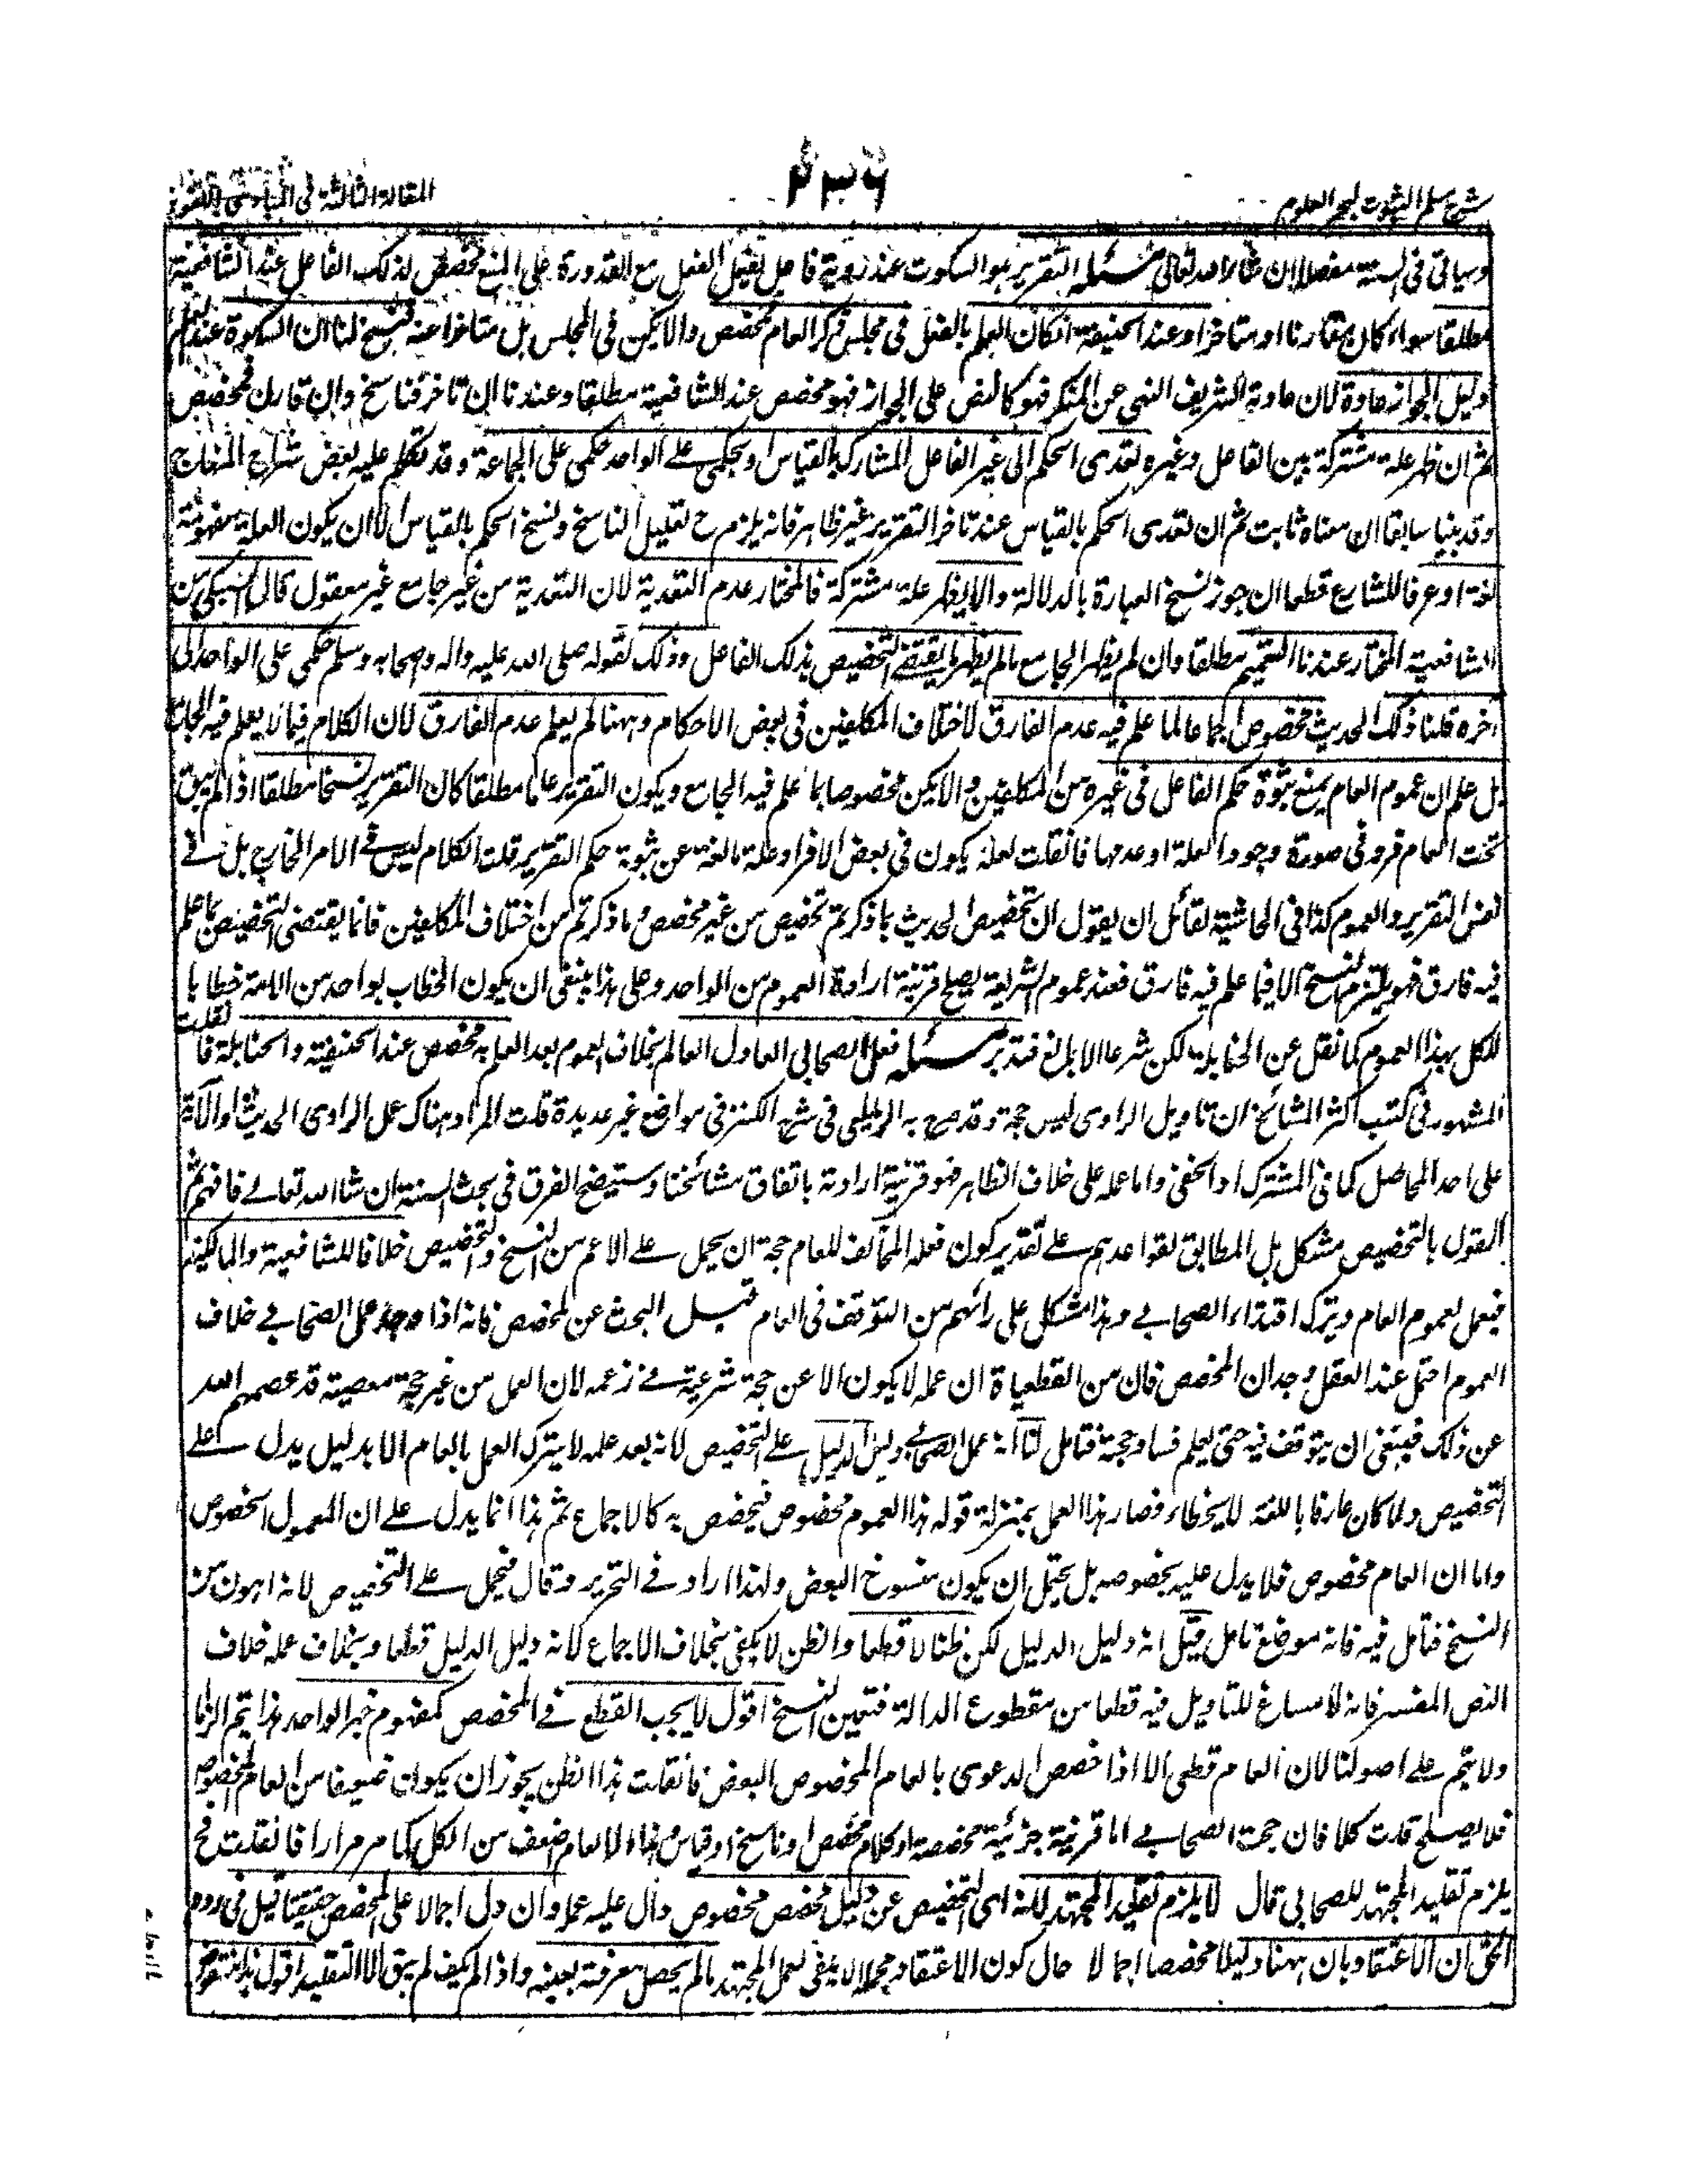 شرح مسلم الثبوت لبحر العلوم
المقالة الثالثة فى المبادى اللغوية
وسياتى فى السنة مفصلا ان شاء الله تعالى مسئلة التقرير هو السكوت عند رؤية فاعل يفعل الفعل مع القدرة على المنع مخصص لذلك الفاعل عند الشافعية
مطلقا سواء كان مقارنا او متاخرا وعند الحنفية ان كان العلم بالفعل فى مجلس ذكر العام مخصص والا يكن فى المجلس بل متاخرا عنه فنسخ لنا ان السكوت عند العلم
دليل الجواز عادة لان عادته الشريف النهى عن المنكر فهو كالنص على الجواز فهو مخصص عند الشافعية مطلقا وعندنا ان تاخر فناسخ وان قارن فمخصص
ثم ان ظهر علة مشتركة بين الفاعل وغيره تعدى الحكم الى غير الفاعل المشارك بالقياس او بحكمى على الواحد حكمى على الجماعة وقد تكلم عليه بعض شراح المنهاج
وقد بينا سابقا ان معناه ثابت ثم ان تعدى الحكم بالقياس عند تاخر التقرير غير ظاهر فانه يلزم ح تعليل الناسخ ونسخ الحكم بالقياس الا ان يكون العلة مفهومة
لغة او عرفا للشارع قطعا ان جوز نسخ العبارة بالدلالة والا يظهر علة مشتركة فالمختار عدم التعدية لان التعدية من غير جامع غير معقول قال السبكى من
الشافعية المختار عندنا التعميم مطلقا وان لم يظهر الجامع ما لم يظهر ما يقتضى التخصيص بذلك الفاعل وذلك لقوله صلى الله عليه واله وصحابه وسلم حكمى على الواحد الى
اخره قلنا ذلك الحديث مخصوص اجماعا لما علم فيه عدم الفارق لاختلاف المكلفين فى بعض الاحكام وههنا لم يعلم عدم الفارق لان الكلام فيما لا يعلم فيه الجامع
بل علم ان عموم العام يمنع ثبوة حكم الفاعل فى غيره من المكلفين والا يكن مخصوصا بما علم فيه الجامع ويكون التقرير عاما مطلقا كان التقرير نسخا مطلقا اذ لم يبق
تحت العام فرد فى صورة وجود العلة او عدمها فان قلت لعله يكون فى بعض الافراد علة مانعة عن ثبوة حكم التقرير قلت الكلام ليس فى الامر الخارج بل فى
نفس التقرير والعموم كذا فى الحاشية لقائل ان يقول ان تخصيص الحديث بما ذكرتم تخصيص من غير مخصص وما ذكرتم من اختلاف المكلفين فانما يقتضى التخصيص بما علم
فيه فارق فهو يلتزم النسخ الا فيما علم فيه فارق فعند عموم الشريعة يصلح قرينة ارادة العموم من الواحد وعلى هذا ينبغى ان يكون الخطاب بواحد من الامة خطابا
للكل بهذا العموم كما نقل عن الحنابلة لكن شرعا لا بل لغ فتدبر مسئلة فعل الصحابى العادل العالم بخلاف العموم بعد العلم به مخصص عند الحنفية والحنابلة فان قلت
المشهور فى كتب اكثر المشائخ ان تاويل الراوى ليس حجة وقد صرح به الزيلعى فى شرح الكنز فى مواضع غير عديدة قلت المراد هناك عمل الراوى الحديث او الآية
على احد المحامل كما فى المشترك او الخفى واما عمله على خلاف الظاهر فهو قرينة ارادته باتفاق مشائخنا وستيضح الفرق فى بحث السنة ان شاء الله تعالى فافهم ثم
القول بالتخصيص مشكل بل المطابق لقواعدهم على تقدير كون فعله المخالف للعام حجة ان يحمل على الاعم من النسخ والتخصيص خلافا للشافعية والمالكية
فيعمل بعموم العام ويترك اقتداء الصحابى وهذا مشكل على رائهم من التوقف فى العام قبل البحث عن المخصص فانه اذا وجد عمل الصحابى خلاف
العموم احتمل عند العقل وجدان المخصص فان من القطعياة ان عمله لا يكون الا عن حجة شرعية فى زعمه لان العمل من غير حجة معصية قد عصمهم الله
عن ذلك فينبغى ان يتوقف فيه حتى يعلم فساد حجته فتامل لنا انه عمل الصحابى وليل الدليل على التخصيص لانه بعد علمه لا يترك العمل بالعام الا بدليل يدل على
التخصيص ولما كان عارفا باللغة لا يخطاء فصار هذا العمل بمنزلة قوله هذا العموم مخصوص فيخصص به كالاجماع ثم هذا انما يدل على ان المعمول الخصوص
واما ان العام مخصوص فلا يدل عليه بخصوصه بل يحتمل ان يكون منسوخ البعض ولهذا اراد فى التحرير وقال فيحمل على التخصيص لانه اهون من
النسخ فتامل فيه فانه موضع تامل قيل انه دليل الدليل لكن ظنا لا قطعا والظن لا يكفى بخلاف الاجماع لانه دليل الدليل قطعا وبخلاف عمله خلاف
النص المفسر فانه لا مساغ للتاويل فيه قطعا من مقطوع الدالة فتعين النسخ اقول لا يجب القطع فى المخصص كمفهوم خبر الواحد هذا يتم الزاما
ولا يتم على اصولنا لان العام قطعى الا اذا خصص الدعوى بالعام المخصوص البعض فان قلت هذا الظن يجوز ان يكون ضعيفا من العام المخصوص
فلا يصلح قلت كلا فان حجة الصحابى اما قرينة جزئية مخصصة او كلام مخصص او ناسخ او قياس وهذا الالعام ضعف من الكل كما مر مرارا فان قلت فح
يلزم تقليد المجتهد للصحابى قال لا يلزم تقليد المجتهد لانه اى التخصيص عن دليل مخصص مخصوص دال عليه عمله وان دل اجمالا على المخصص حقيقتا قيل فى رده
الحق ان الاعتقاد بان ههنا دليلا مخصصا اجمالا حال كون الاعتقاد مجملا لا ينفى لعمل المجتهد ما لم يحصل معرفته بعينه واذا لم يكف لم يبق الا التقليد اقول هذا منقوض